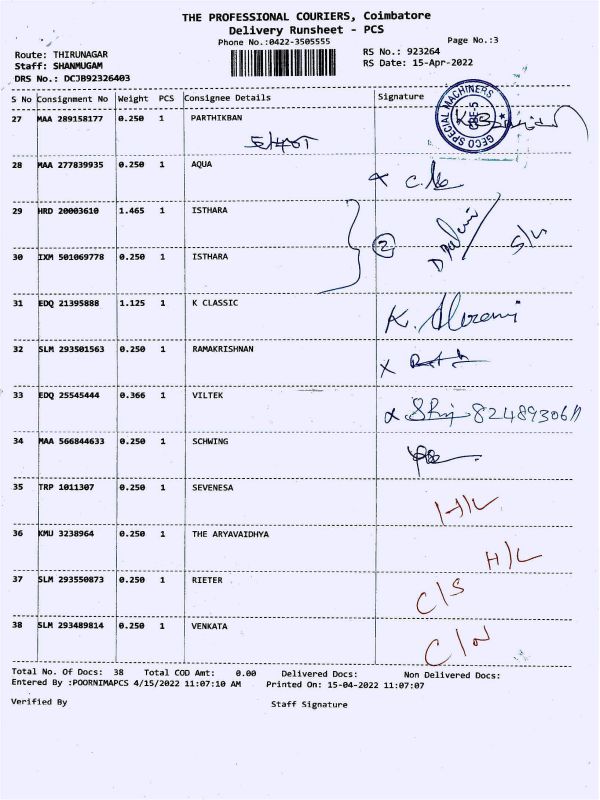 THE PROFESSIONAL COURIERS, Coimbatore
Delivery Runsheet - PCS
Phone No.:0422-3505555
Page No.:3
Route: THIRUNAGAR
Staff: SHANMUGAM
DRS No.: DCJB92326403
RS No.: 923264
RS Date: 15-Apr-2022
S No Consignment No Weight PCS Consignee Details Signature
27 MAA 289158177 0.250 1 PARTHIKBAN
GECO SPECIAL MACHINERS
CBE-5
28 MAA 277839935 0.250 1 AQUA
29 HRD 20003610 1.465 1 ISTHARA
2
S/L
30 IXM 501069778 0.250 1 ISTHARA
31 EDQ 21395888 1.125 1 K CLASSIC
32 SLM 293501563 0.250 1 RAMAKRISHNAN
33 EDQ 25545444 0.366 1 VILTEK
34 MAA 566844633 0.250 1 SCHWING
35 TRP 1011307 0.250 1 SEVENESA
H/L
36 KMU 3238964 0.250 1 THE ARYAVAIDHYA
H/L
37 SLM 293550873 0.250 1 RIETER
C/S
38 SLM 293489814 0.250 1 VENKATA
C/N
Total No. Of Docs: 38 Total COD Amt: 0.00 Delivered Docs: Non Delivered Docs:
Entered By :POORNIMAPCS 4/15/2022 11:07:10 AM Printed On: 15-04-2022 11:07:07
Verified By Staff Signature